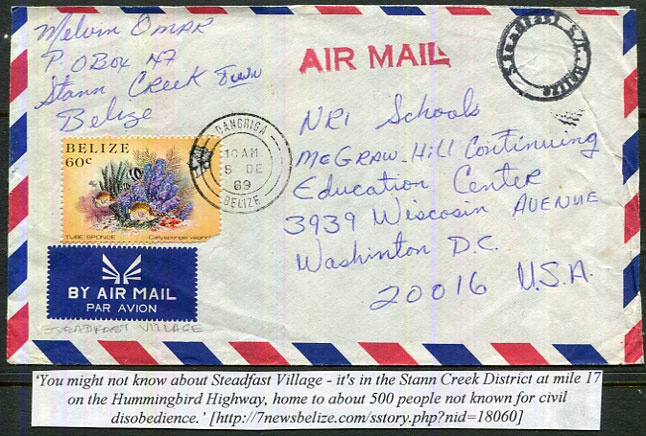 Melvin Omar
P.O Box 47
Stann Creek Town
Belize
AIR MAIL
Steadfast S.C. BELIZE
DANGRIGA
10 AM
8 DE
89
BELIZE
BELIZE
60c
TUBE SPONGE
Callyspongia vaginalis
BY AIR MAIL
PAR AVION
STEADFAST VILLAGE
NRI Schools
McGRAW-Hill Continuing
Education Center
3939 Wisconsin AVENUE
Washinton D.C.
20016 U.S.A.
'You might not know about Steadfast Village - it's in the Stann Creek District at mile 17
on the Hummingbird Highway, home to about 500 people not known for civil
disobedience.' [http://7newsbelize.com/sstory.php?nid=18060]